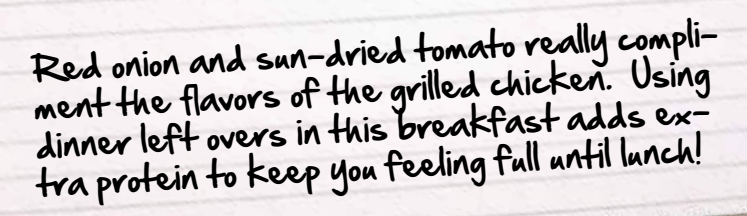 Red onion and sun-dried tomato really compli-
ment the flavors of the grilled chicken. Using
dinner left overs in this breakfast adds ex-
tra protein to keep you feeling full until lunch!